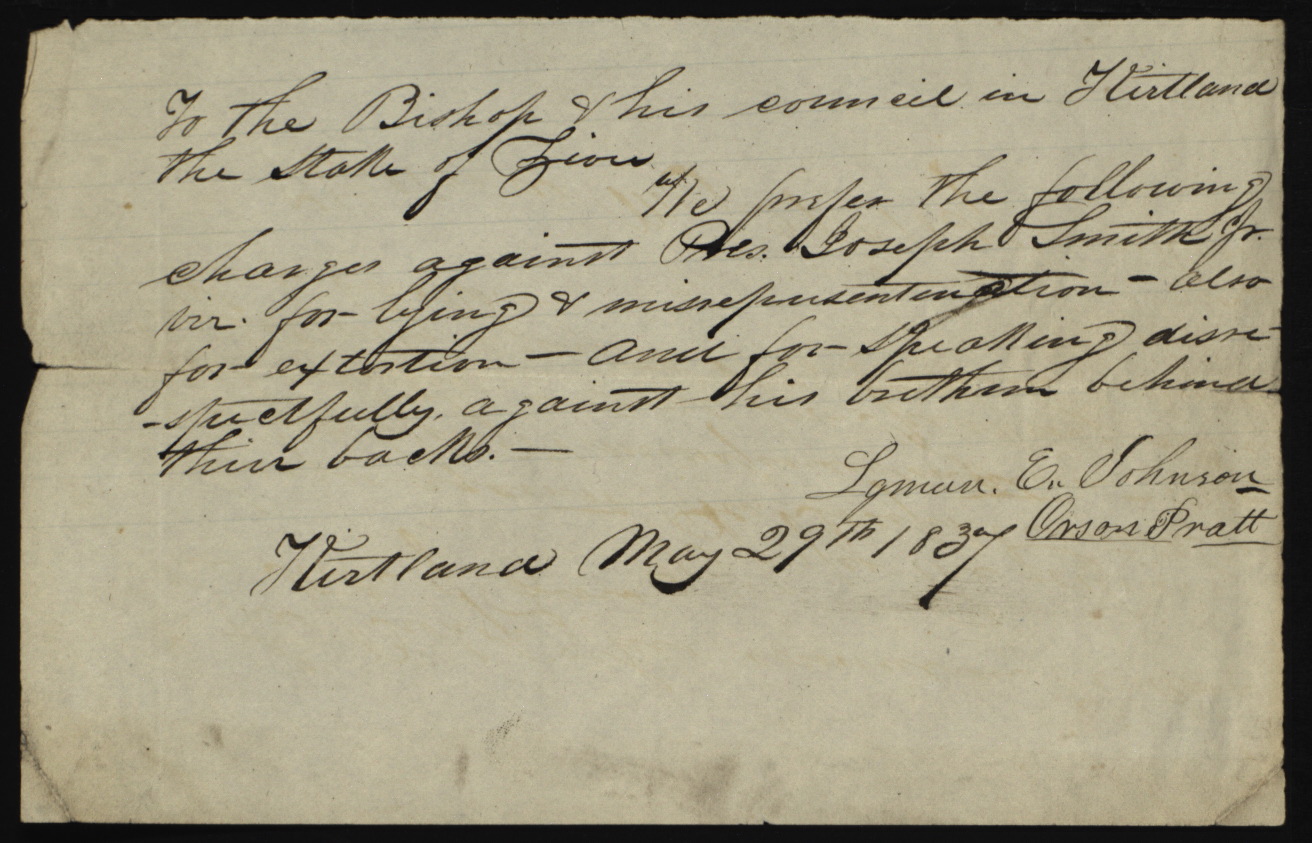 To the Bishop & his council in Kirtland
the stake of Zion
We prefer the following
charges against Pres. Joseph Smith Jr.
viz. for lying & misrepresentation – also
for extortion — and for speaking disre-
-spectfully, against his brethren behind
their backs. —
Lyman. E. Johnson
Orson Pratt
Kirtland May 29th 1837